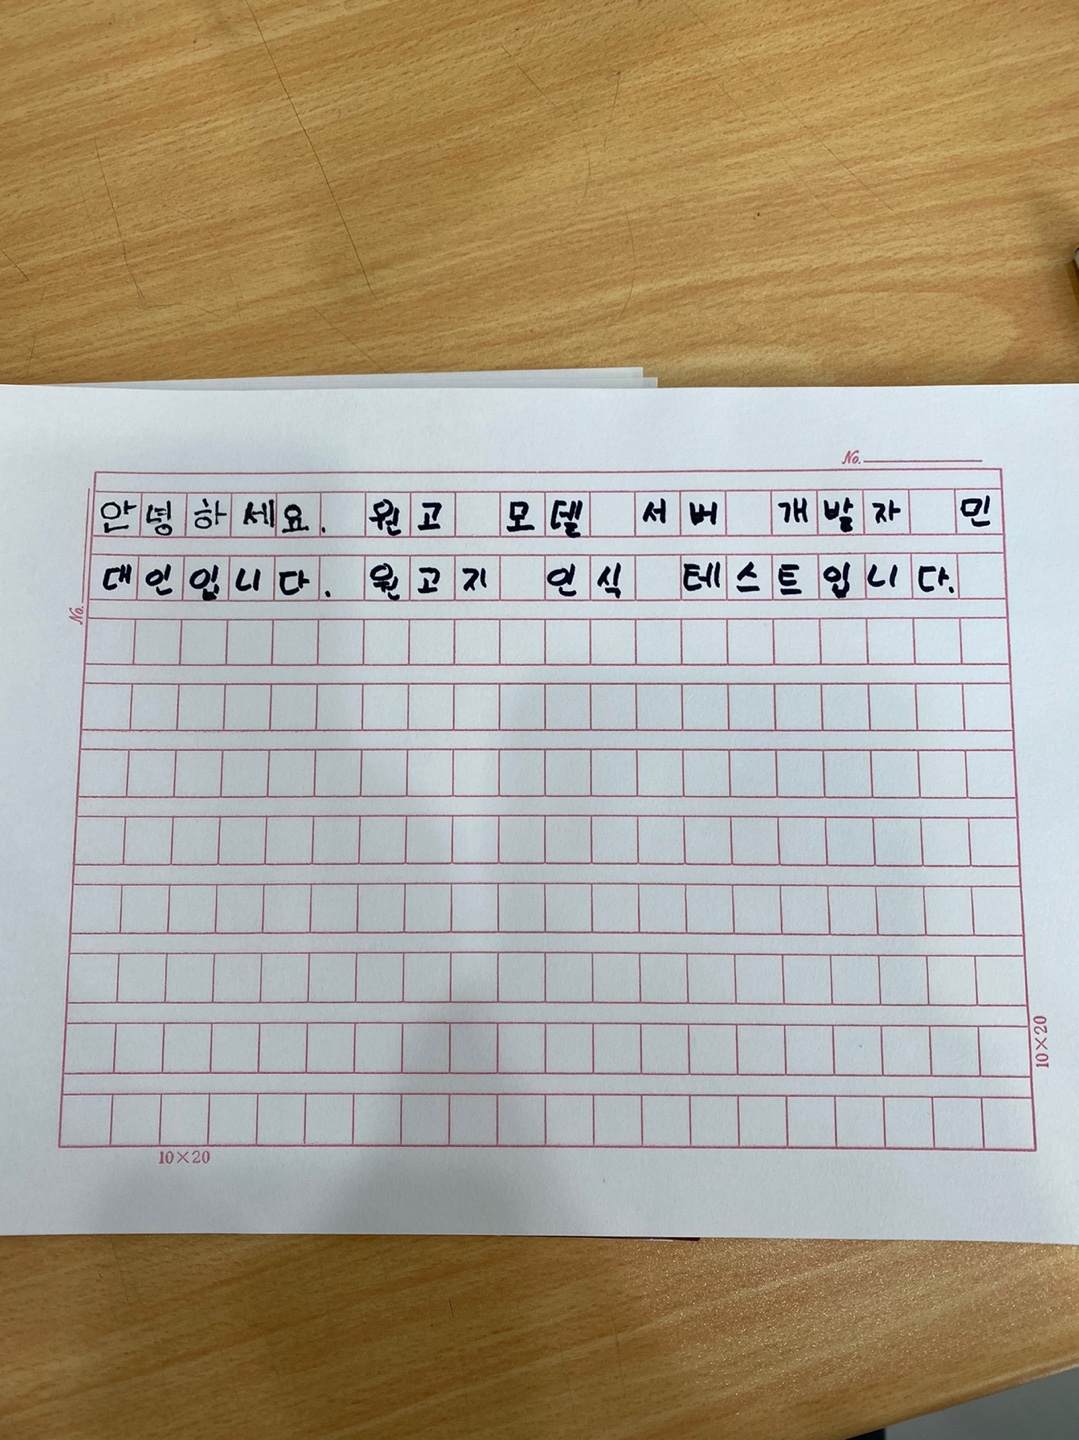 No.
안녕하세요. 원고 모델 서버 개발자 민
대인입니다. 원고지 인식 테스트입니다.
No.
10×20
10×20